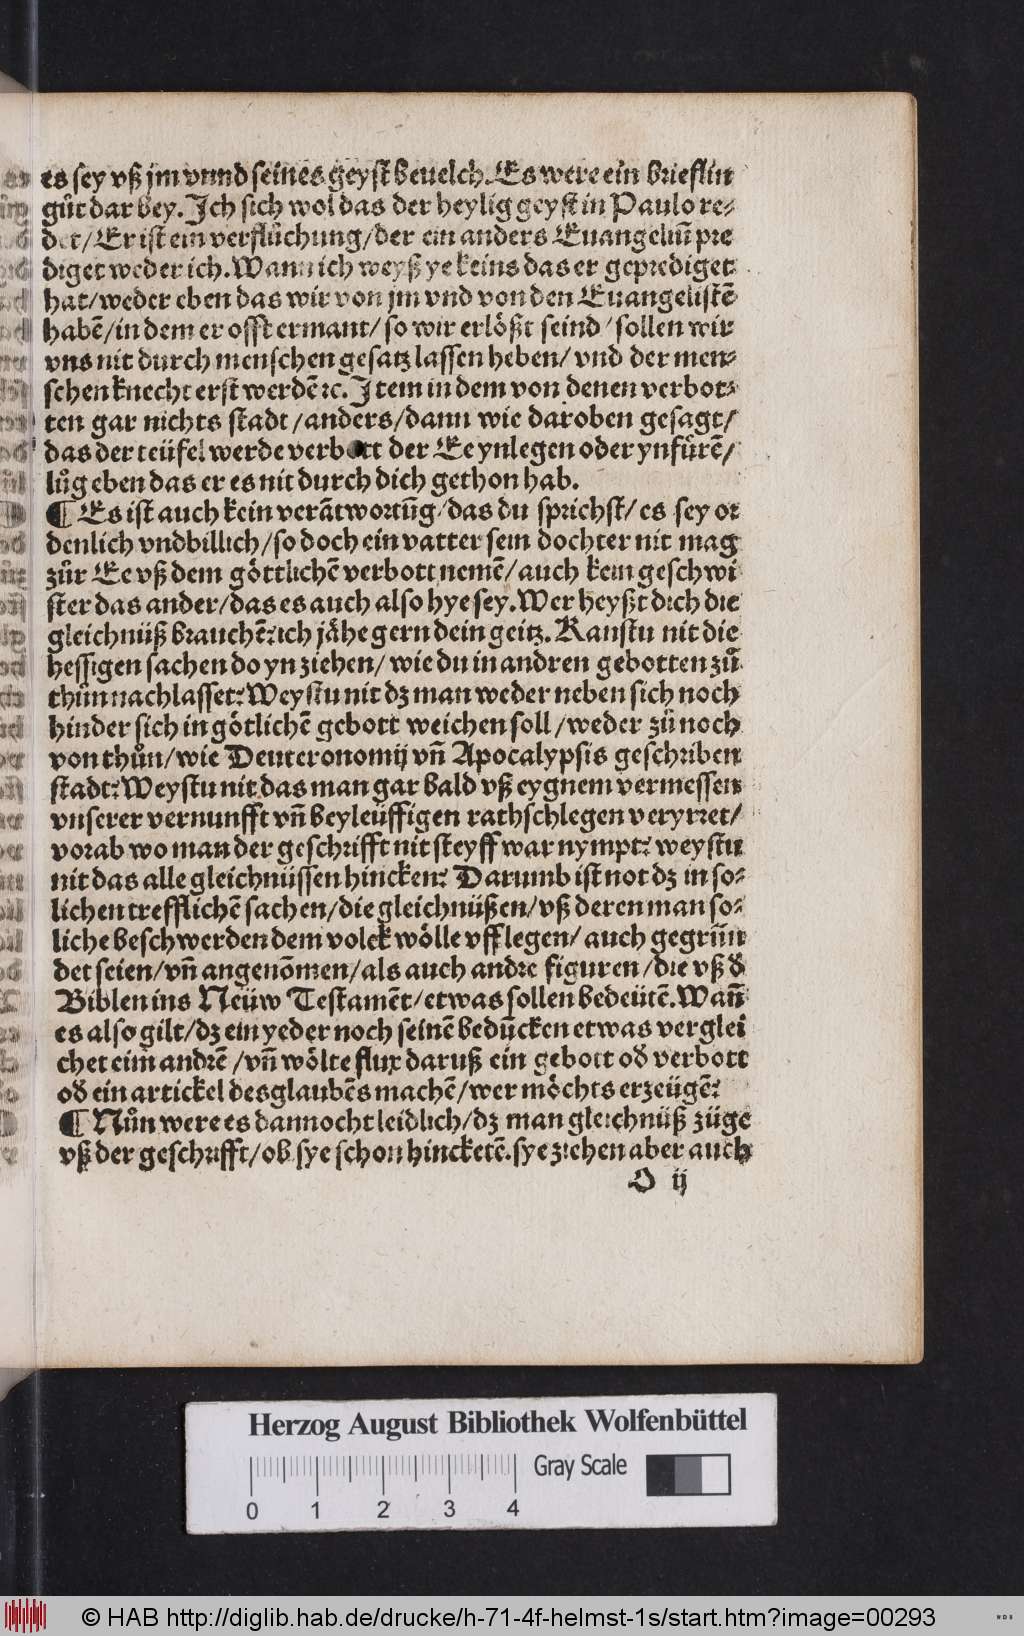 es sey vß jm vnnd seines geyst beuelch. Es were ein brieflin
gůt dar bey. Ich sich wol das der heylig geyst in Paulo re⸗
det/ Er ist ein verflůchung/ der ein anders Euangeliū pre
diget weder ich. Wann ich weyß ye keins das er geprediget
hat/ weder eben das wir von jm vnd von den Euangelistē
habē/ in dem er offt ermant/ so wir erlößt seind/ sollen wir
vns nit durch menschen gesatz lassen heben/ vnd der men⸗
schen knecht erst werdē ꝛc. Item in dem von denen verbot⸗
ten gar nichts stadt/ anders/ dann wie daroben gesagt/
das der teüfel werde verbott der Ee ynlegen oder ynfůrē/
lůg eben das er es nit durch dich gethon hab.
¶ Es ist auch kein verātwortūg/ das du sprichst/ es sey or
denlich vnd billich/ so doch ein vatter sein dochter nit mag
zůr Ee vß dem göttlichē verbott nemē/ auch kein geschwi
ster das ander/ das es auch also hye sey. Wer heyßt dich die
gleichnüß brauchē? ich jähe gern dein geitz. Kanstu nit die
hessigen sachen do yn ziehen/ wie du in andren gebotten zů
thůn nachlasset? Weystu nit dz man weder neben sich noch
hinder sich in götlichē gebott weichen soll/ weder zů noch
von thůn/ wie Deuteronomij vñ Apocalypsis geschriben
stadt? Weystu nit das man gar bald vß eygnem vermessen
vnserer vernunfft vñ beyleüffigen rathschlegen veryrret/
vorab wo man der geschrifft nit steyff war nympt? weystu
nit das alle gleichnüssen hincken? Darumb ist not dz in so⸗
lichen trefflichē sachen/ die gleichnüßen/ vß deren man so⸗
liche beschwerden dem volck wölle vff legen/ auch gegrün
det seien/ vñ angenōmen/ als auch andre figuren/ die vß d̕
Biblen ins Neüw Testamēt/ etwas sollen bedeütē. Wañ
es also gilt/ dz ein yeder noch seinē bedūcken etwas verglei
chet eim andrē/ vñ wölte flux daruß ein gebott od̕ verbott
od̕ ein artickel des glaubēs machē/ wer möchts erzeügē?
¶ Nůn were es dannocht leidlich/ dz man gleichnüß züge
vß der geschrifft/ ob sye schon hincketē. sye ziehen aber auch
O ij
Herzog August Bibliothek Wolfenbüttel
Gray Scale
0 1 2 3 4
© HAB http://diglib.hab.de/drucke/h-71-4f-helmst-1s/start.htm?image=00293